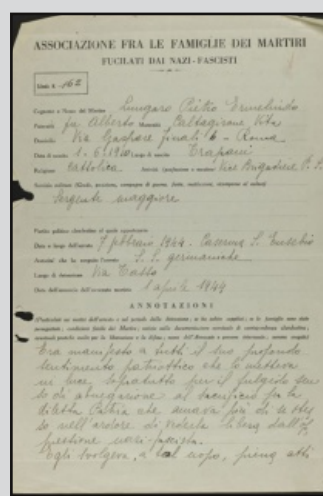 ASSOCIAZIONE FRA LE FAMIGLIE DEI MARTIRI
FUCILATI DAI NAZI-FASCISTI
162
Cognome e Nome del Martire Lungaro Pietro Ermelindo
Paternità fu Alberto Maternità Caltagirone Vita
Domicilio Via Gaspare Finali 6 - Roma
Data di nascita 1.6.1910 Luogo di nascita Trapani
Religione Cattolica Attività Vice Brigadiere P.S.
Sergente maggiore
Partito politico clandestino al quale apparteneva
Data e luogo dell'arresto 7 febbraio 1944 - Caserma S. Eusebio
Autorità che ha eseguito l'arresto S.S. germaniche
Luogo di detenzione Via Tasso
Data dell'annuncio dell'avvenuto martirio 1 aprile 1944
ANNOTAZIONI
Era manifesto a tutti il suo profondo
sentimento patriottico che lo metteva
in luce soprattutto per il fulgido sen
so di abnegazione al sacrificio per la
diletta Patria che amava più di se stes
so nell'ardore di vederla libera dall'op
pressione nazi-fascista.
Egli svolgeva, a tal uopo, piena atti